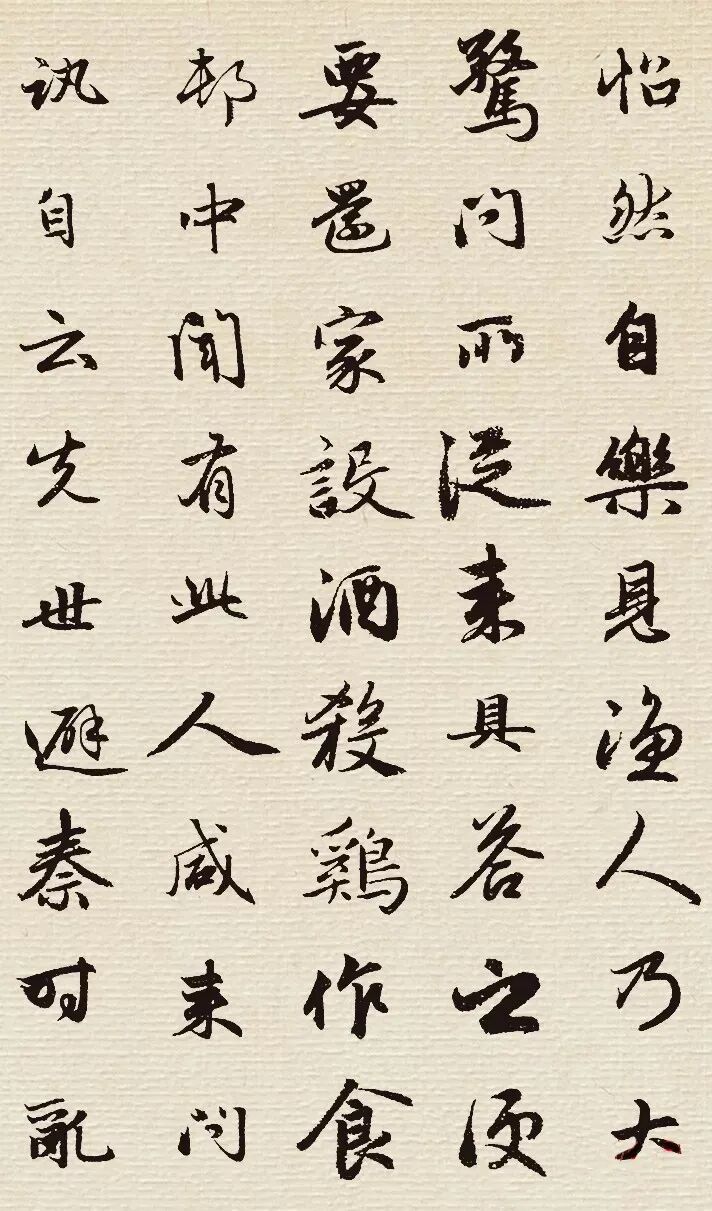 怡然自樂見漁人乃大
驚問所從来具答之便
要還家設酒殺鷄作食
邨中聞有此人咸来問
訊自云先世避秦時亂